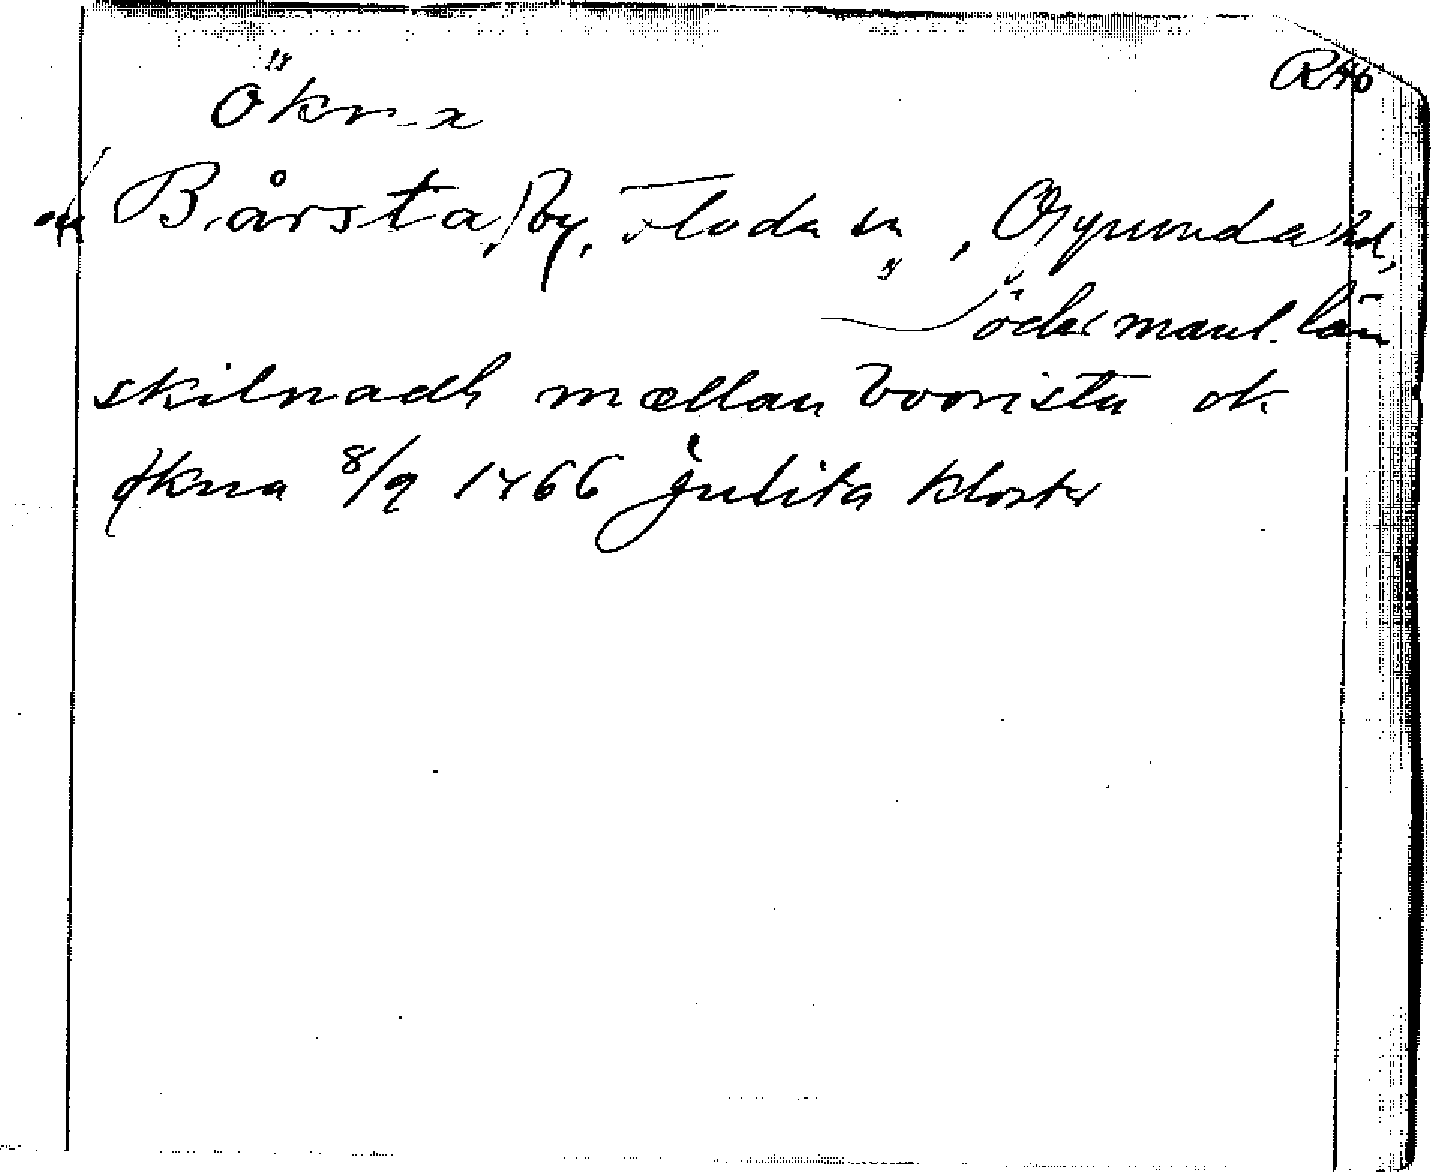 Ökna
RAb
och Bårsta, by, Floda sn, Oppunda hd,
Södermanl. län
skilnadh mællan boorista ok
økna 8/9 1466 Julita kloster